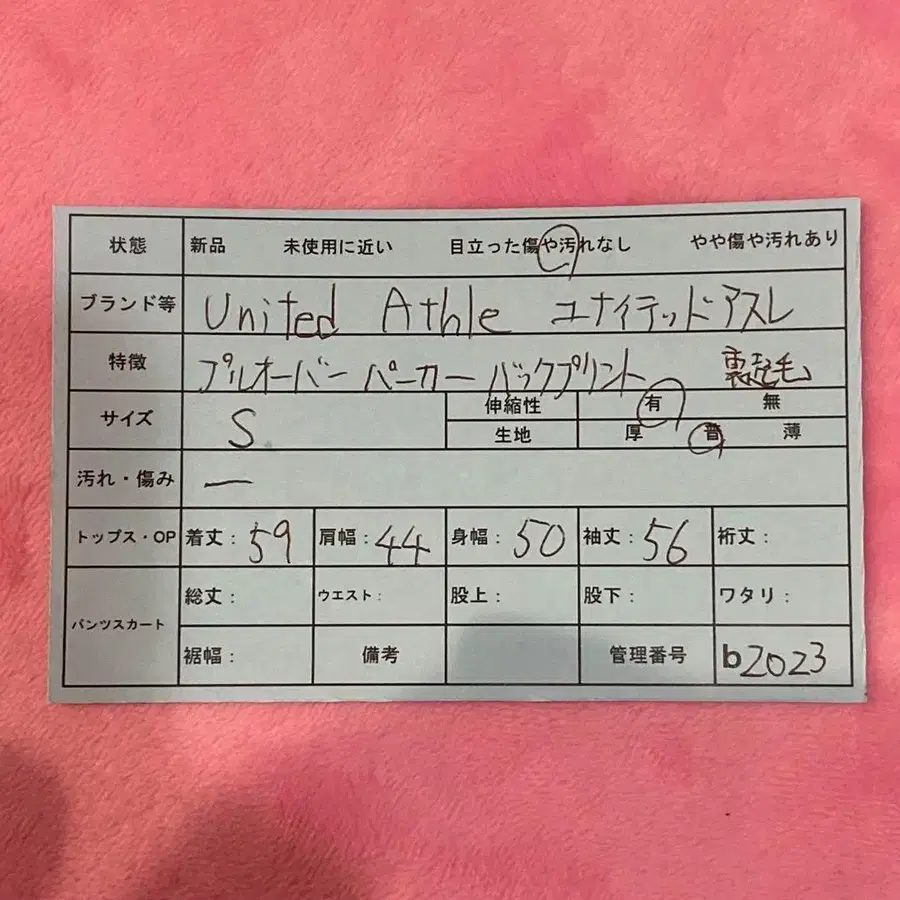 状態 新品 未使用に近い 目立った傷や汚れなし やや傷や汚れあり
ブランド等 United Athle ユナイテッドアスレ
特徴 プルオーバー パーカー バックプリント 裏起毛
サイズ S 伸縮性 有 無
生地 厚 普 薄
汚れ・傷み ー
トップス・OP 着丈：59 肩幅：44 身幅：50 袖丈：56 裄丈：
パンツスカート 総丈： ウエスト： 股上： 股下： ワタリ：
裾幅： 備考 管理番号 b2023